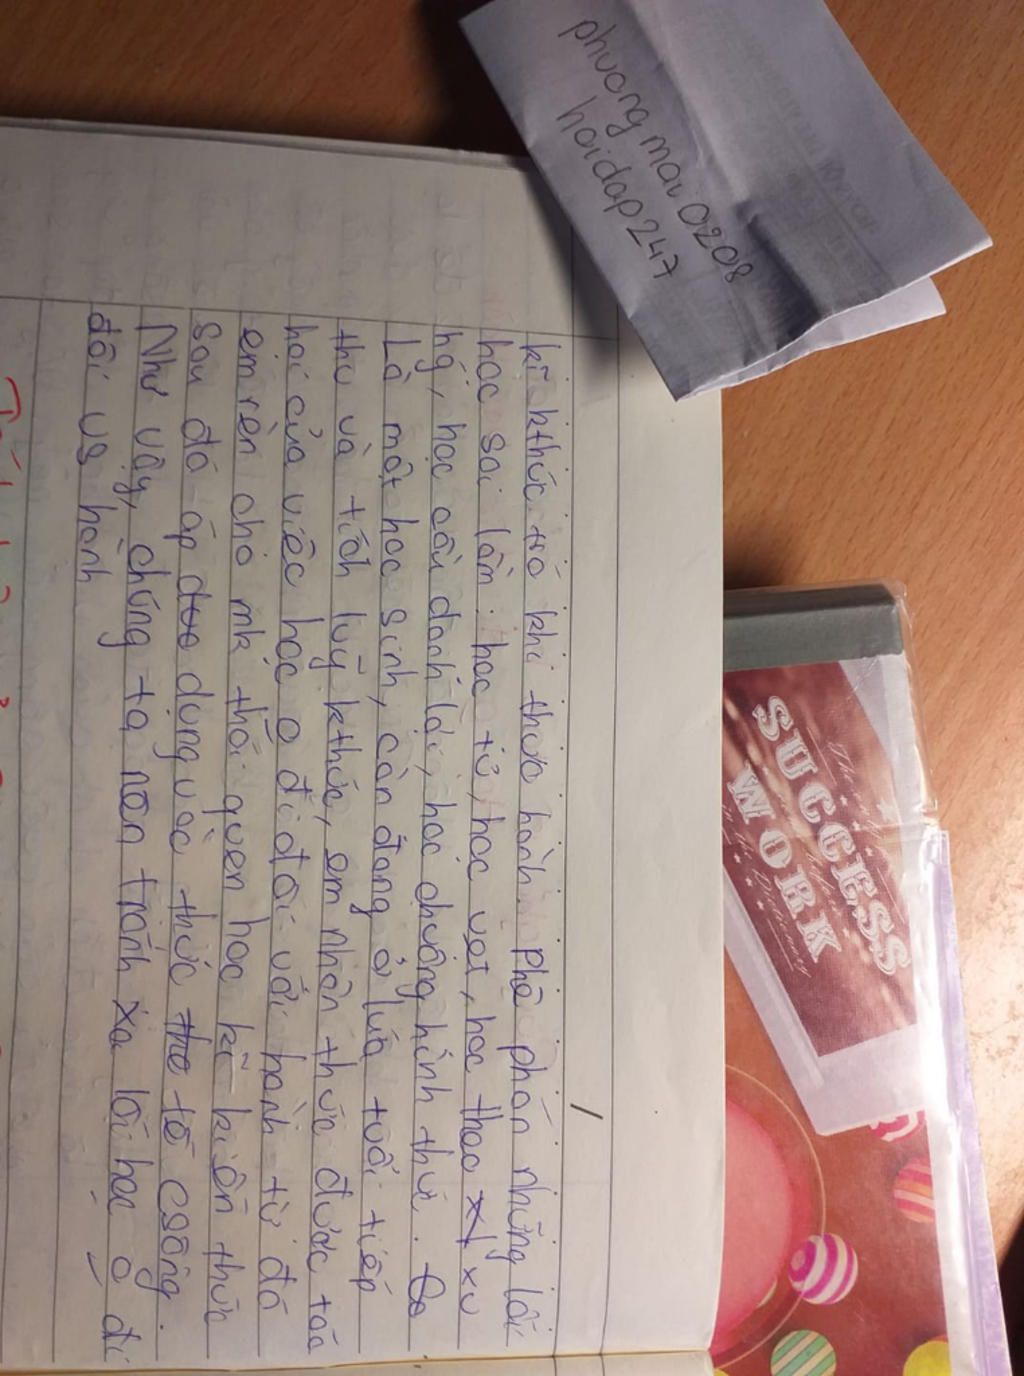 phuongmai0208
hoidap247
kĩ kthức trc khi thực hành. Phê phán những lối
học sai lầm: học tủ, học vẹt, học theo xu
hg, học cầu danh lợi, học chuộng hình thức.
Là một học sinh, còn đang ở lứa tuổi tiếp
thu và tích luỹ kthức, em nhận thức được tác
hại của việc học o đi đôi với hành từ đó
em rèn cho mk thói quen học kĩ kiến thức
sau đó áp dụng vào thức tế csống.
Như vậy, chúng ta nên tránh xa lối học o đi
đôi vs hành
SUCCESS
WORK